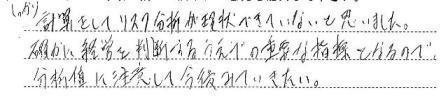 しっかり
計算をしてリスク分析が現状できていないと思いました。
確かに経営を判断するうえでの重要な指標となるので、
分析値に注意して今後みていきたい。